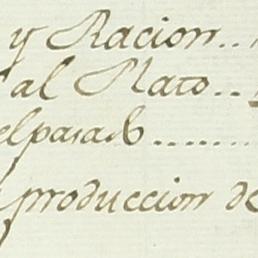 y Racion..
al Plato..
elpasado.......
produccion de